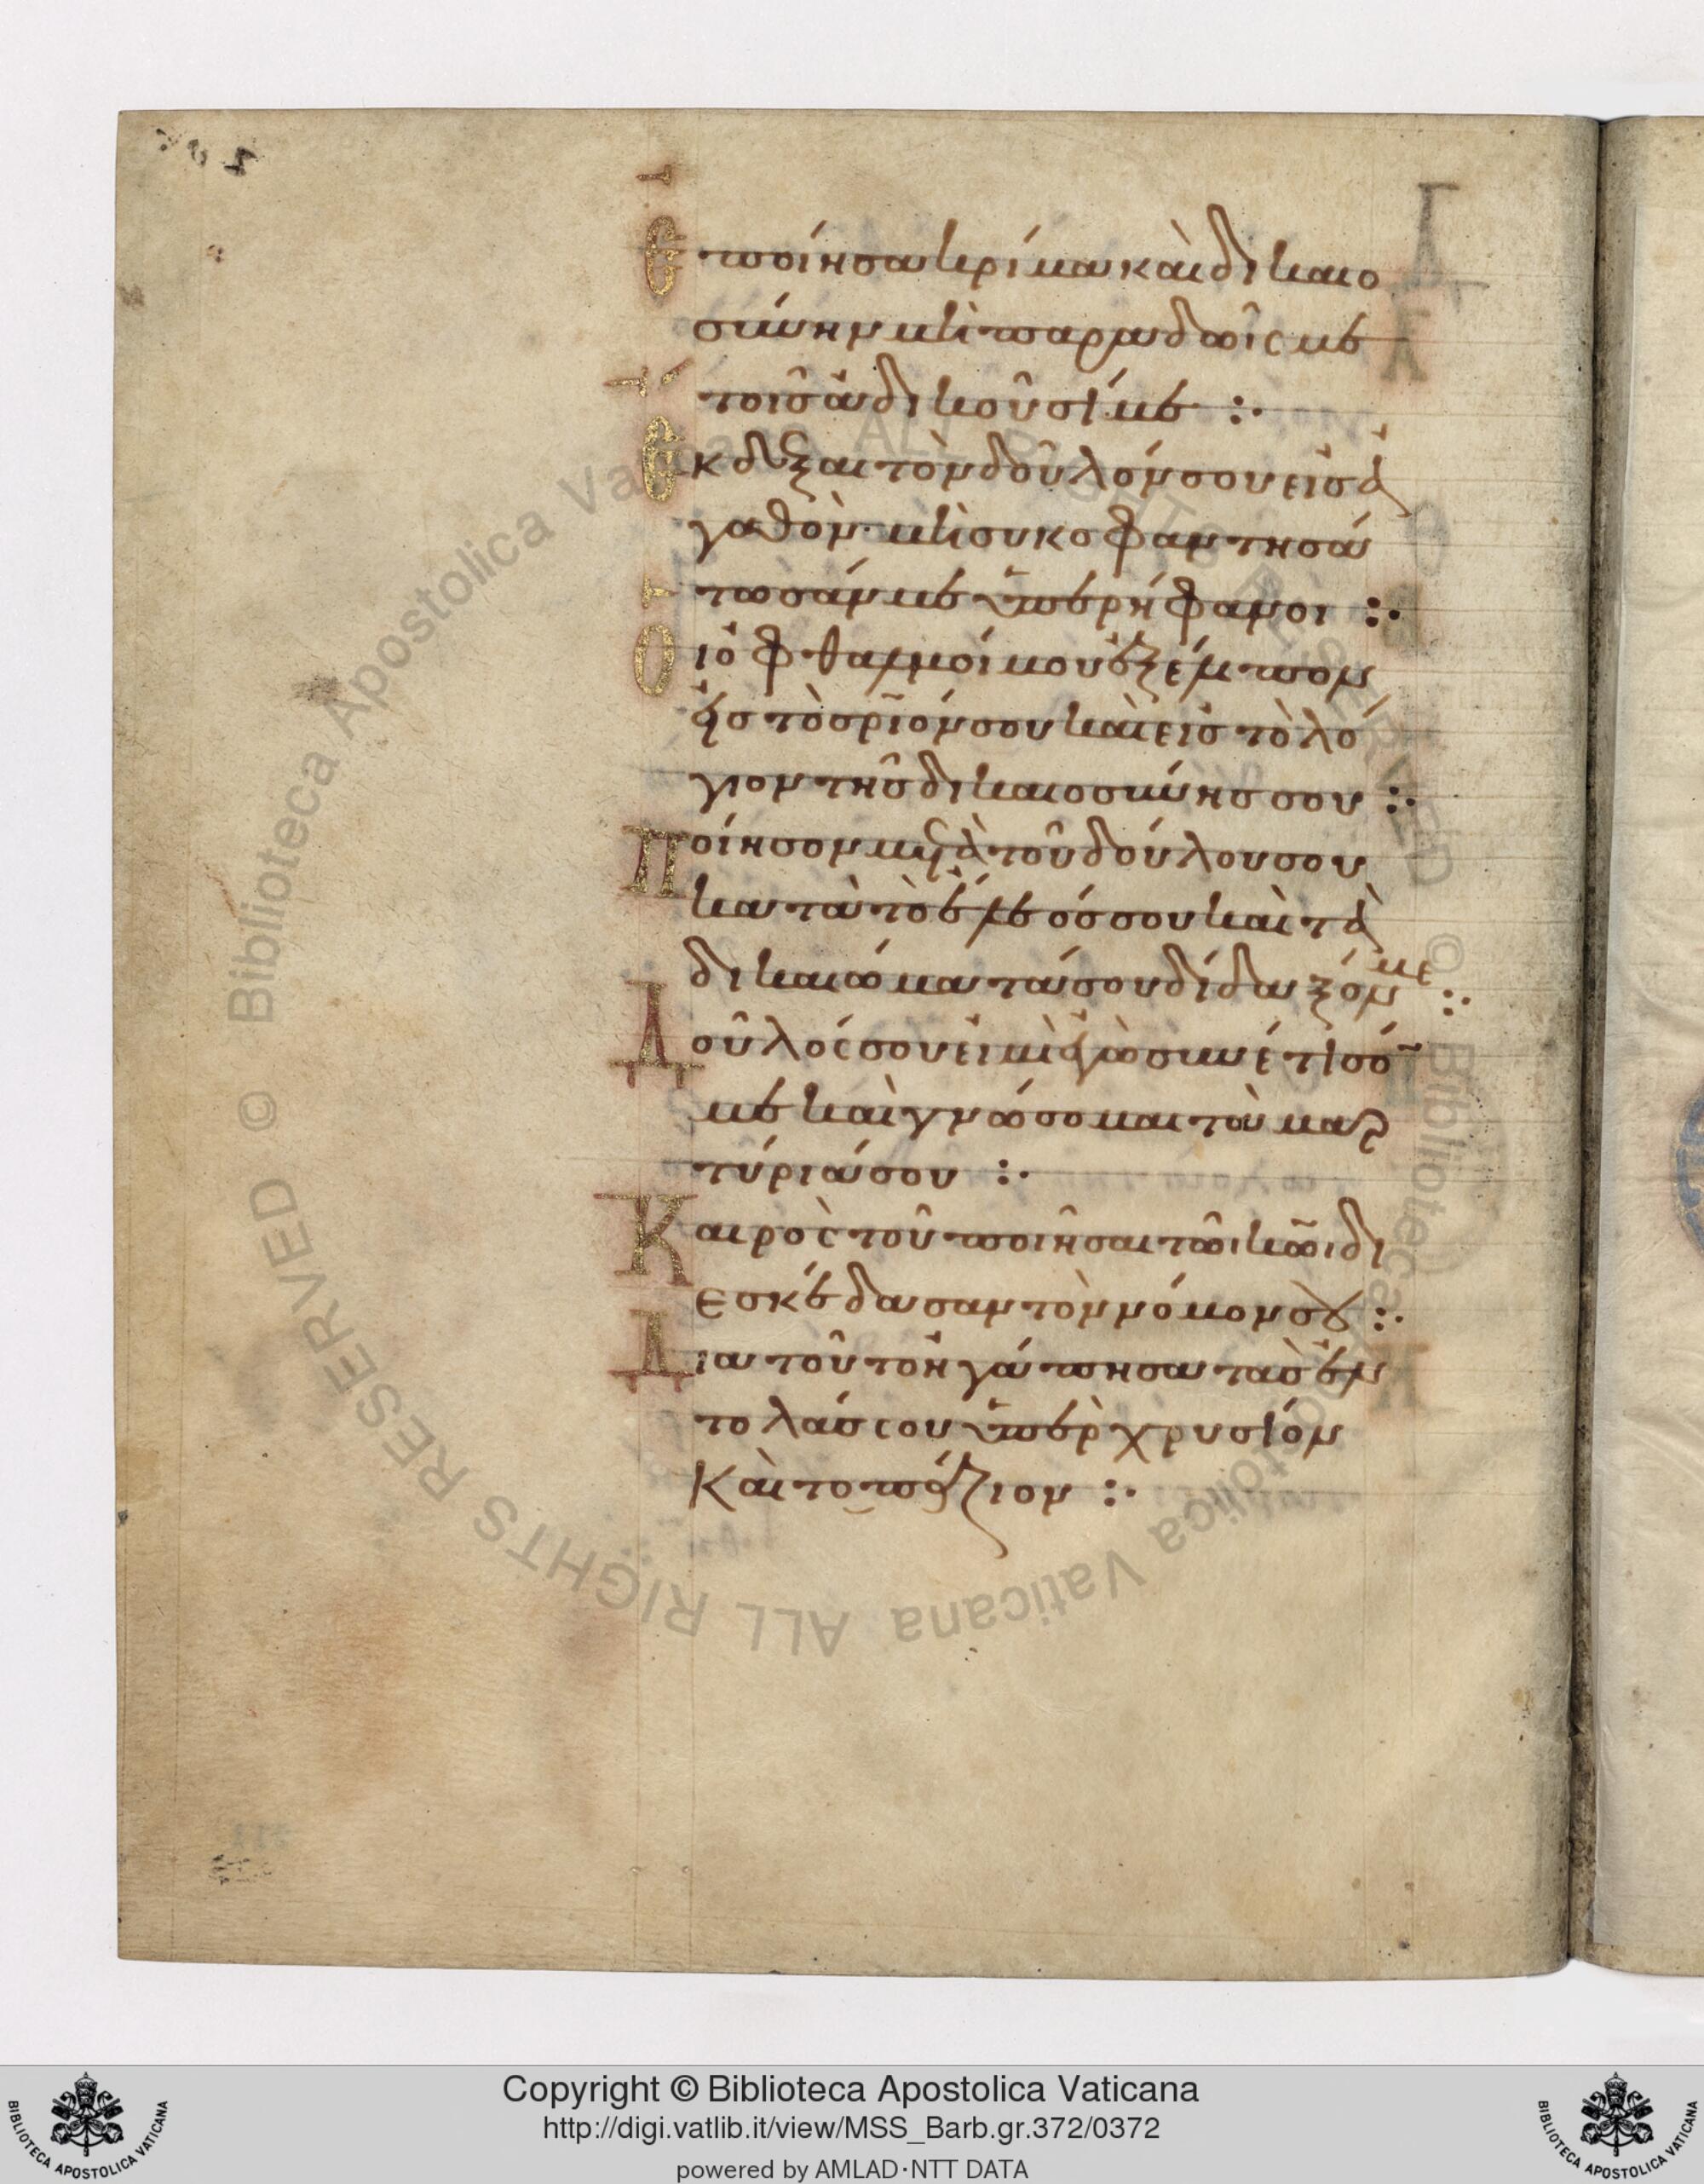 Ἐποίησα κρίμα καὶ δικαιο
σύνην μὴ παραδῶις με
τοῖς ἀδικοῦσί με :·
Ἔκδεξαι τὸν δοῦλόν σου εἰς ἀ
γαθόν· μὴ συκοφαντησά
τωσάν με ὑπερήφανοι :·
Οἱ ὀφθαλμοί μου ἐξέλιπον
εἰς τὸ σρ̅ιόν σου καὶ εἰς τὸ λό
γιον τῆς δικαιοσύνης σου :·
Ποίησον μετὰ τοῦ δούλου σου
κατὰ τὸ ἔλεός σου καὶ τὰ
δικαιώματά σου δίδαξόν με :·
Δοῦλός σου εἰμὶ ἐγὼ συνέτισό̅
με καὶ γνώσομαι τὰ μαρ
τύριά σου :·
Καιρὸς τοῦ ποιῆσαι τῶι κ̅ω̅ι δι
εσκέδασαν τὸν νόμον σου :·
Δια τοῦτο ἠγάπησα τὰς ἐν
τολάς σου ὑπὲρ χρυσίον
καὶ τοπάζιον :·
© Biblioteca Apostolica Vaticana ALL RIGHTS RESERVED © Biblioteca Apostolica Vaticana ALL RIGHTS RESERVED
Copyright © Biblioteca Apostolica Vaticana
http://digi.vatlib.it/view/MSS_Barb.gr.372/0372
powered by AMLAD·NTT DATA
BIBLIOTECA APOSTOLICA VATICANA
BIBLIOTECA APOSTOLICA VATICANA